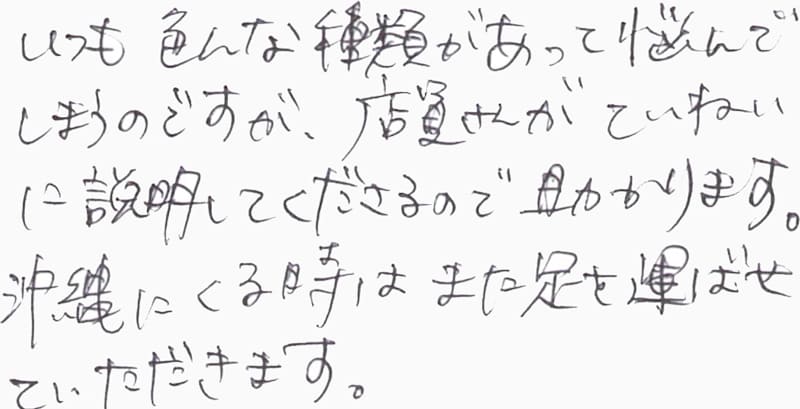 いつも色んな種類があって悩んで
しまうのですが、店員さんがていねい
に説明してくださるので助かります。
沖縄にくる時はまた足を運ばせ
ていただきます。